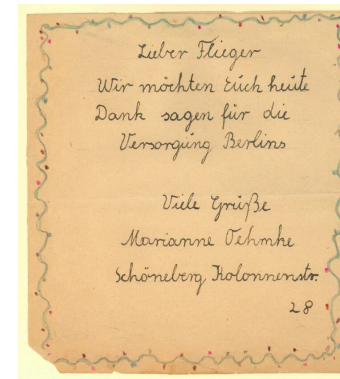 Lieber Flieger
Wir möchten Euch heute
Dank sagen für die
Versorgung Berlins
Viele Grüße
Marianne Oehmke
Schöneberg Kolonnenstr.
28